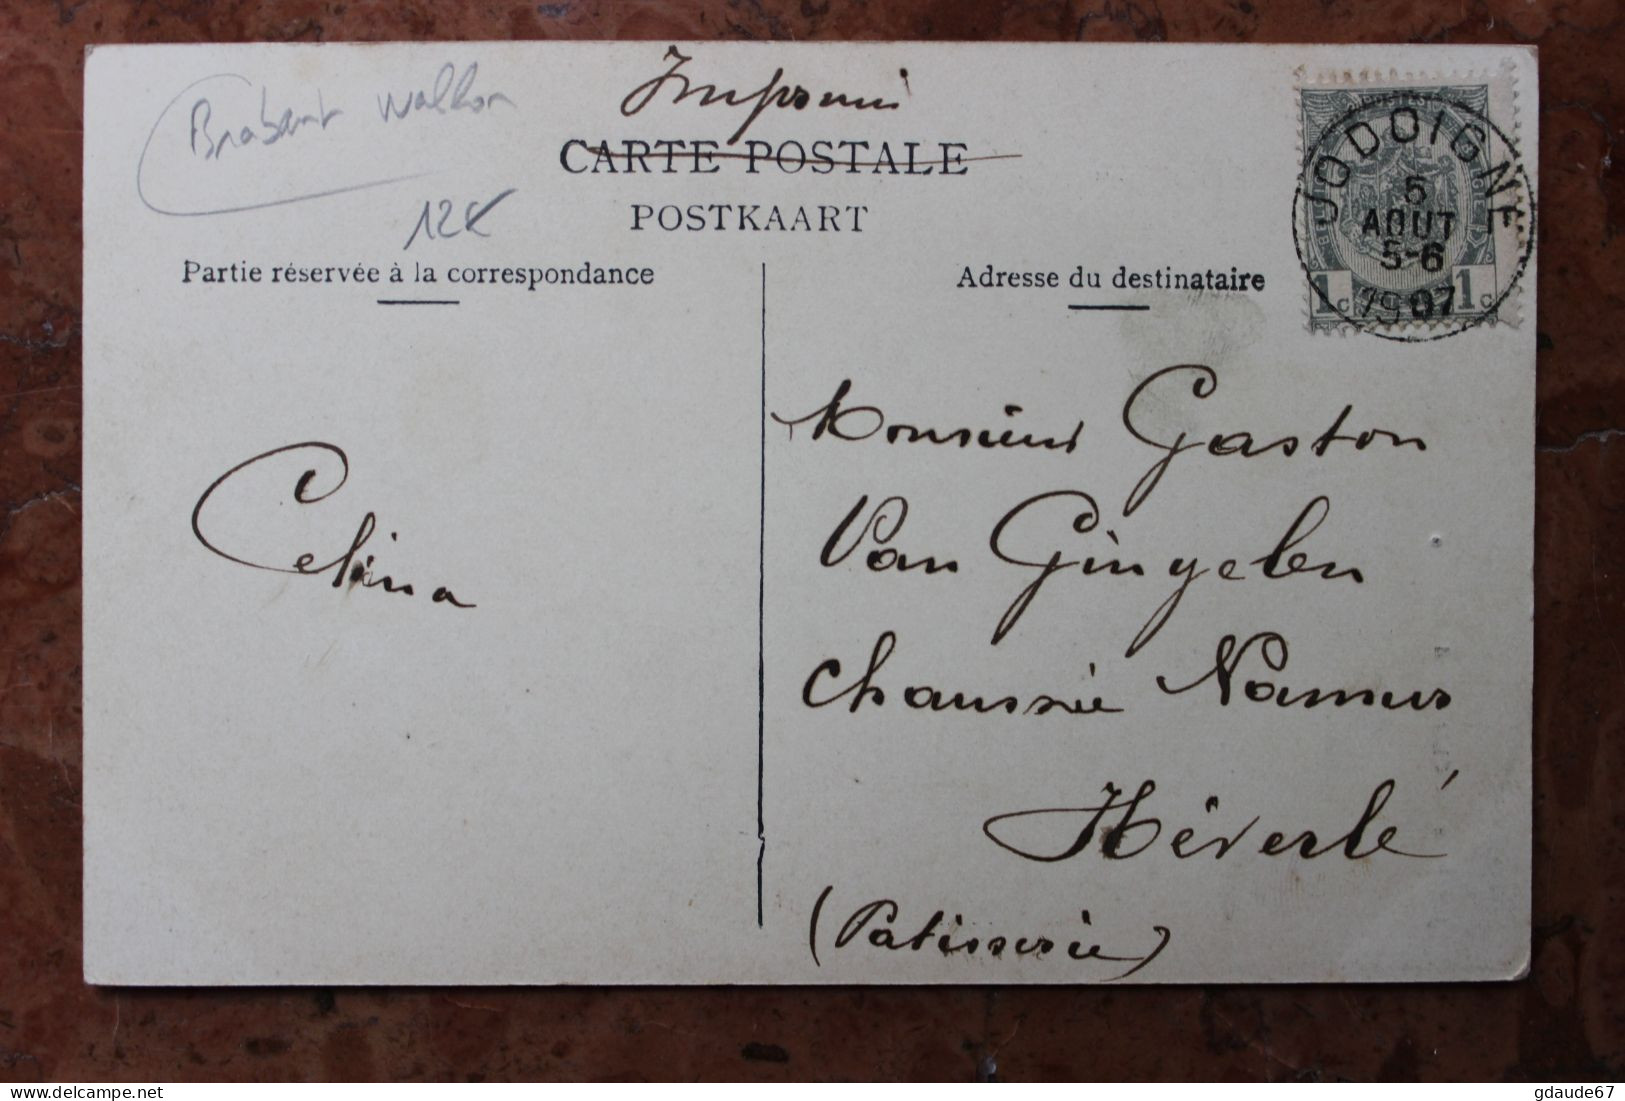 Brabant Wallon
12€
Imprimé
CARTE POSTALE
POSTKAART
Partie réservée à la correspondance
Adresse du destinataire
JODOIGNE
5
AOUT
5-6
1907
1c 1c
Celina
Monsieur Gaston
Van Gingelen
Chaussée Namur
Héverlé
(Patisserie)
gdaude67